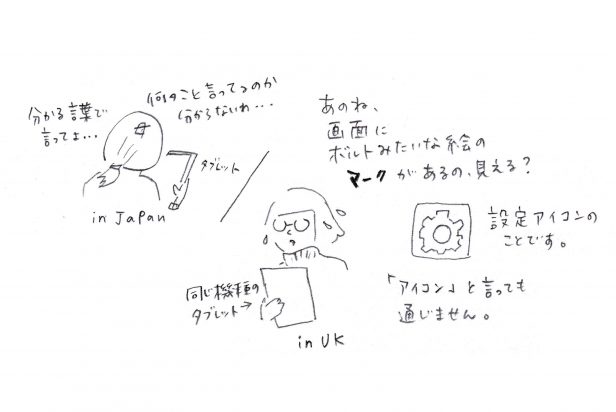 分かる言葉で
言ってよ...
何のこと言ってるのか
分からないわ...
タブレット
in Japan
あのね、
画面に
ボルトみたいな絵の
マークがあるの、見える?
設定アイコンの
ことです。
「アイコン」と言っても
通じません。
同じ機種の
タブレット→
in UK